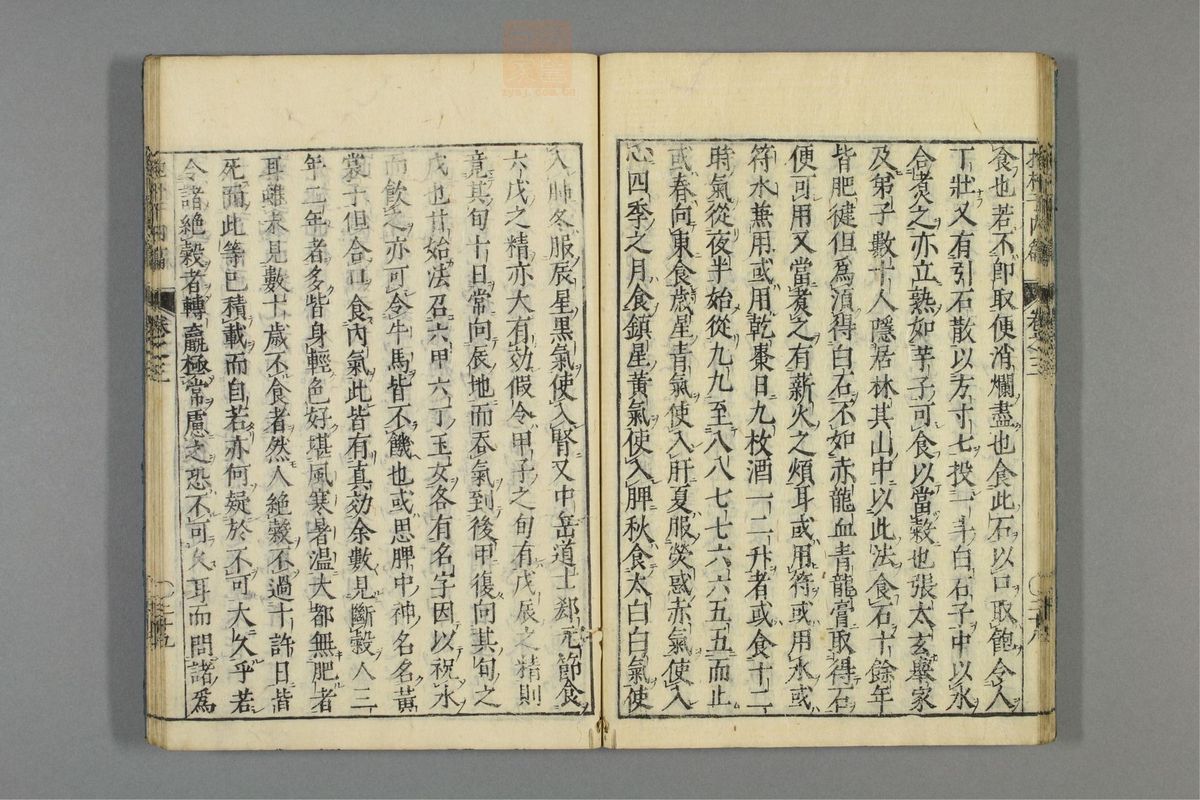 食也若不即取便消爛盡也食此石以口取飽令人
丁壯又有引石散以方寸七投一斗白石子中以水
合煮之亦立熟如芋子可食以當穀也張太玄舉家
及弟子數十人隱居林其山中以此法食石十餘年
皆肥健但爲須得白石不如赤龍血青龍膏取得石
便可用又當煮之有薪火之煩耳或用符或用水或
符水兼用或用乾棗日九枚酒一二升者或食十二
時氣從夜半始從九九至八八七七六六五五而止
或春向東食歲星青氣使入肝夏服熒惑赤氣使入
心四季之月食鎮星黃氣使入脾秋食太白白氣使
入肺冬服辰星黑氣使入腎又中岳道士郄元節食
六戊之精亦大有効假令甲子之旬有戊辰之精則
竟其旬十日常向辰地而吞氣到後甲復向其旬之
戊也甘始法召六甲六丁玉女各有名字因以祝水
而飲之亦可令牛馬皆不饑也或思脾中神名名黃
裳子但合口食內氣此皆有真効余數見斷穀人三
年二年者多皆身輕色好堪風寒暑溫大都無肥者
耳雖未見數十歲不食者然人絕穀不過十許日皆
死而此等已積載而自若亦何疑於不可大久乎若
令諸絕穀者轉羸極常慮之恐不可久耳而問諸爲
抱朴子內篇
卷之三
二十八
抱朴子內篇
卷之三
二十九
zysj.com.cn